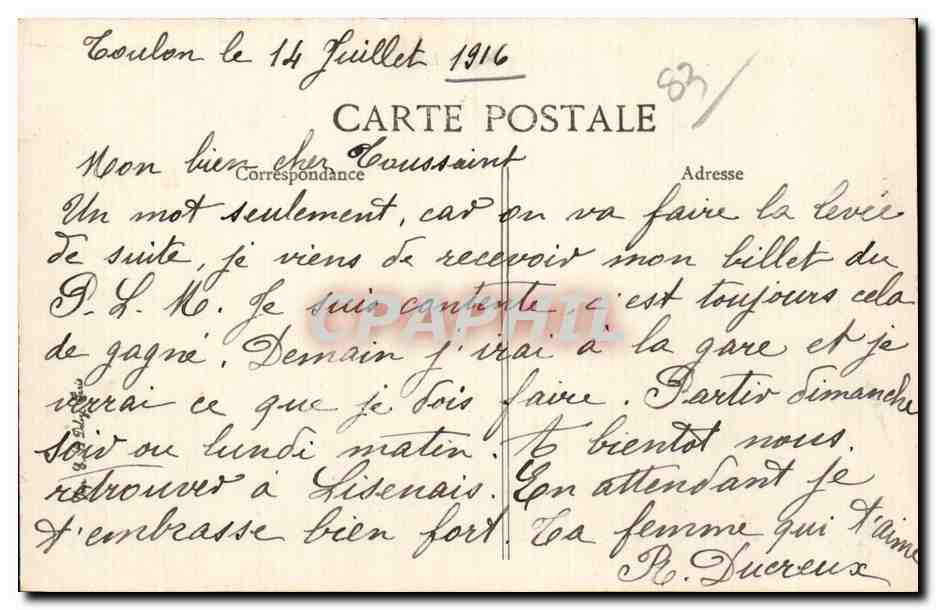 Toulon le 14 Juillet 1916
83
CARTE POSTALE
Mon bien cher Toussaint
Correspondance
Adresse
Un mot seulement, car on va faire la levée
de suite, je viens de recevoir mon billet du
P. L. M. Je suis contente c'est toujours cela
CPAPHIL
de gagné. Demain j'irai à la gare et je
verrai ce que je dois faire. Partir dimanche
soir ou lundi matin. A bientot nous
retrouver à Lisenais. En attendant je
t'embrasse bien fort. Ta femme qui t'aime
R. Ducreux